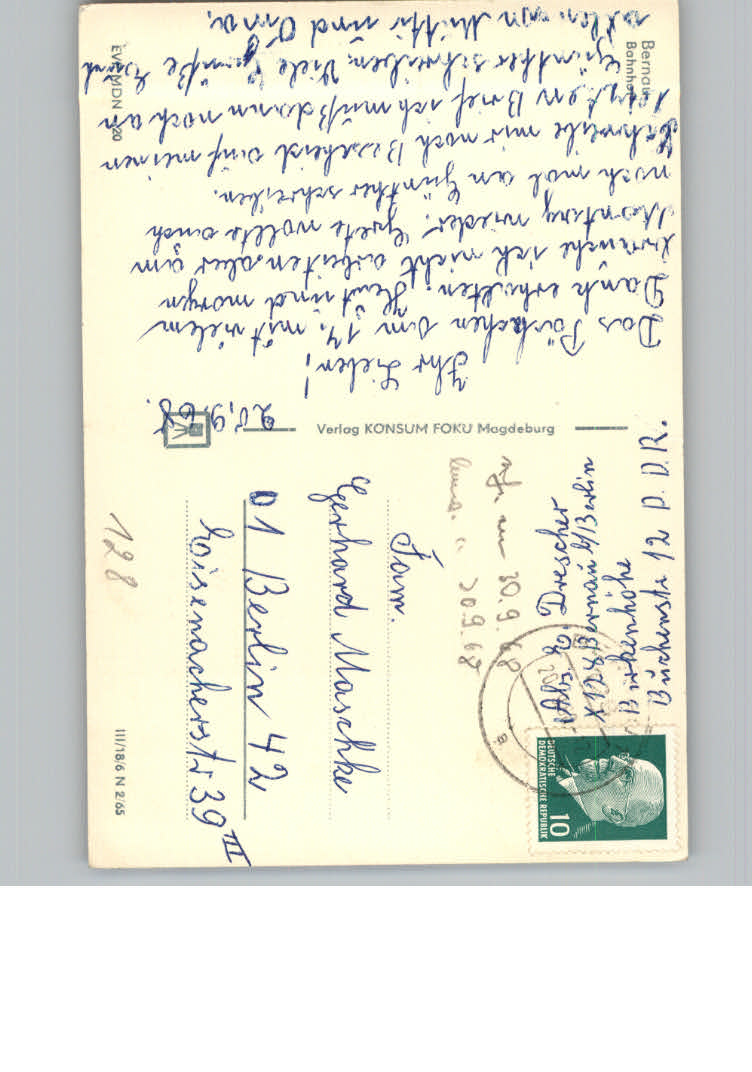 Bernau
Bahnhof
20.9.68.
Ihr Lieben!
Das Päckchen am 17. mit vielem
Dank erhalten. Heut und morgen
brauche ich nicht arbeiten aber am
Montag wieder. Grete wollte auch
noch mal an Günther schreiben.
Schreibe mir noch Bescheid auf meinen
letzten Brief ich muß dann noch an
Günther schreiben. Viele Grüße Euch
allen von Mutti und Oma.
EVP MDN 0,20
Verlag KONSUM FOKU Magdeburg
Abs. E. Drescher
X128 Bernau b/Berlin
Birkenhöhe
Buchenstr 12 D.D.R.
30.9.68
20.9.68
DEUTSCHE
DEMOKRATISCHE REPUBLIK
10
Fam.
Gerhard Maschke
01 Berlin 42
Eisenacherstr 39 III
128
III/18/6 N 2/65